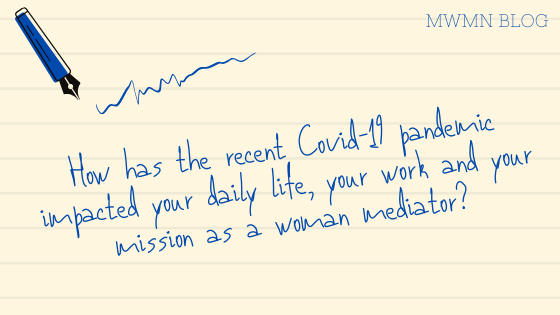 MWMN BLOG
How has the recent Covid-19 pandemic
impacted your daily life, your work and your
mission as a woman mediator?